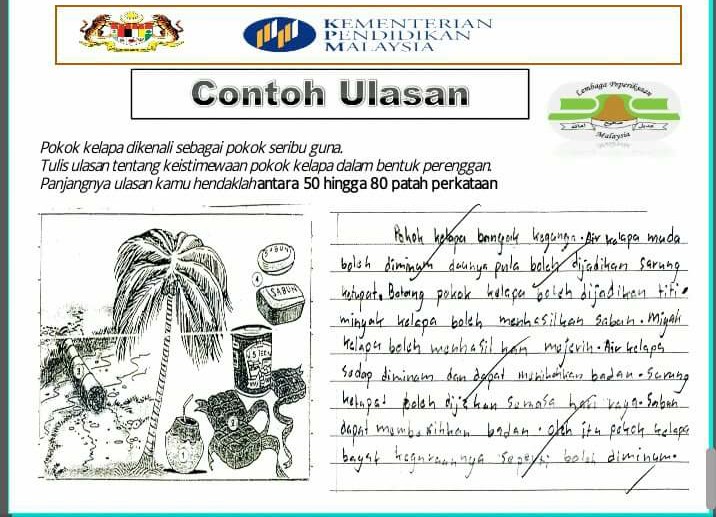 KEMENTERIAN
PENDIDIKAN
MALAYSIA
Contoh Ulasan
Lembaga Peperiksaan
Malaysia
Pokok kelapa dikenali sebagai pokok seribu guna.
Tulis ulasan tentang keistimewaan pokok kelapa dalam bentuk perenggan.
Panjangnya ulasan kamu hendaklahantara 50 hingga 80 patah perkataan
SABUN
SABUN
3
4
1
2
Pokok kelapa banyak . Air kelapa muda
boleh diminum daunya pula boleh dijadikan sarung
ketupat. Batang pokok kelapa boleh dijadikan titi.
minyak kelapa boleh menhasilkan sabun. Miyak
kelapa boleh menhasilkan majerin. Air kelapa
sedap diminum dan dapat badan. Sarung
ketupat boleh semasa hari raya. Sabun
dapat badan. oleh itu pokok kelapa
seperti boleh diminum.